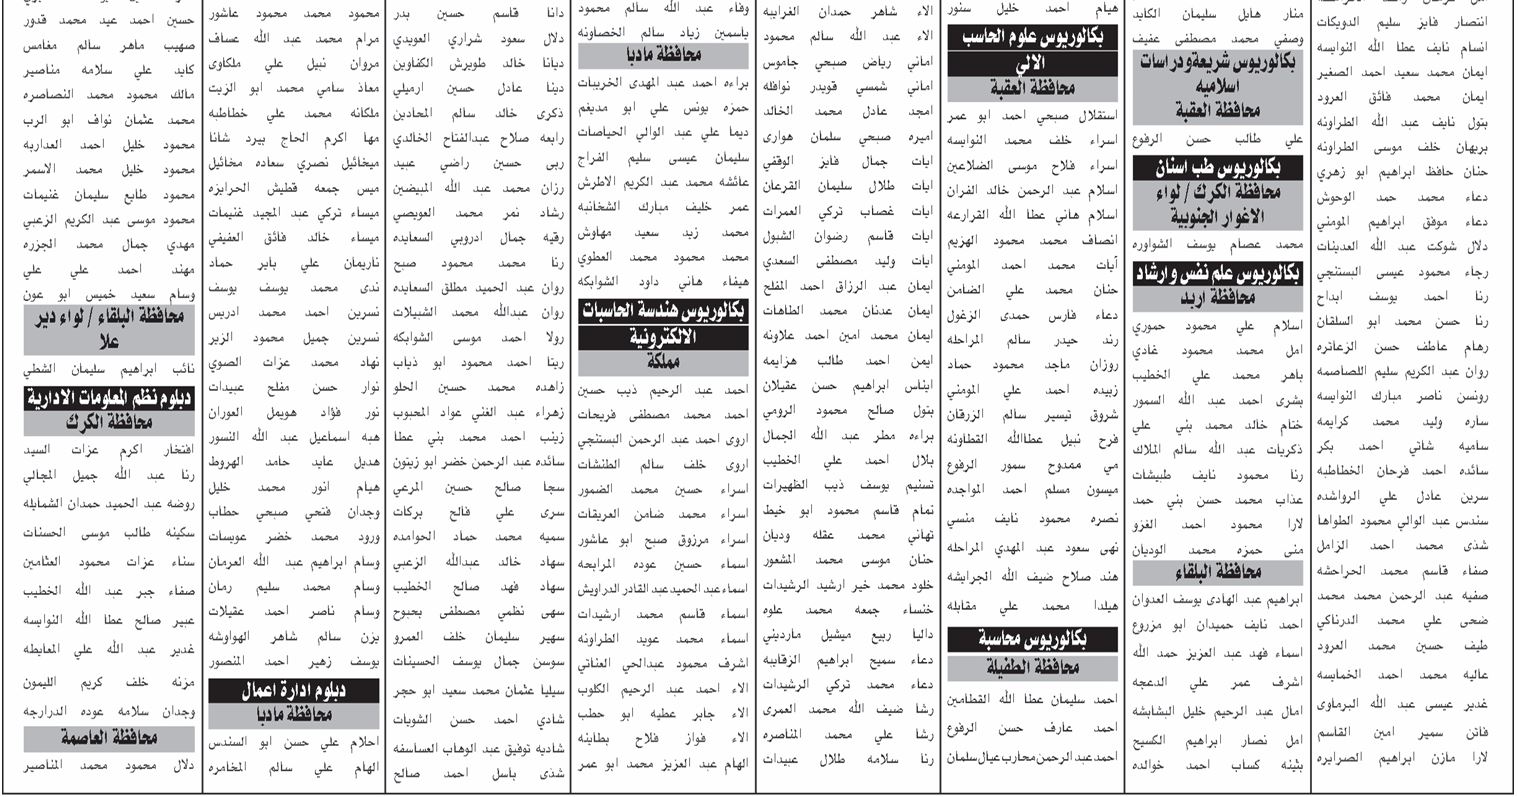 انتصار فايز سليم الدويكات
ابتسام نايف عطا الله النوايسه
ايمان محمد سعيد احمد الصغير
ايمان محمد فائق العرود
بتول نايف عبد الله الطراونه
بريهان خلف موسى الطراونه
حنان حافظ ابراهيم ابو زهري
دعاء محمد حمد الوحوش
دعاء موفق ابراهيم المومني
دلال شوكت عبد الله العدينات
رجاء محمود عيسى البستنجي
رنا احمد يوسف ابداح
رنا حسن محمد ابو السلقان
رهام عاطف حسن الزعاتره
روان عبد الكريم سليم اللصاصمه
رونسن ناصر مبارك النوايسه
ساره وليد محمد كرايمه
ساميه شاتي احمد بكر
سائده احمد فرحان الخطاطبه
سرين عادل علي الرواشده
سندس عبد الوالي محمود الطواها
شذى محمد احمد الزامل
صفاء قاسم محمد الحراحشه
صفيه عبد الرحمن محمد محمد
ضحى علي محمد الدرناكي
طيف حسين محمد العرود
عاليه محمد احمد الخمايسه
غدير عيسى عبد الله البرماوي
فاتن سمير امين القاسم
لارا مازن ابراهيم الصرايره
منار هايل سليمان الكايد
وصفي محمد مصطفى عفيف
بكالوريوس شريعة ودراسات
اسلاميه
محافظة العقبة
علي طالب حسن الرفوع
بكالوريوس طب اسنان
محافظة الكرك / لواء
الاغوار الجنوبية
محمد عصام يوسف الشواوره
بكالوريوس علم نفس وارشاد
محافظة اربد
اسلام علي محمود حموري
امل محمد محمود غادي
باهر محمد علي الخطيب
بشرى احمد عبد الله السمور
ختام خالد محمد بني علي
ذكريات عبد الله سالم الملاك
رنا محمود نايف طبيشات
عذاب محمد حسن بني حمد
لارا محمود احمد الغزو
منى حمزه محمد الوديان
محافظة البلقاء
ابراهيم عبد الهادي يوسف العدوان
احمد نايف حميدان ابو مزروع
اسماء فهد عبد العزيز حمد الله
اشرف عمر علي الدعجه
امال عبد الرحيم خليل البشابشه
امل نصار ابراهيم الكسيح
بثينه كساب احمد خوالده
هيام احمد خليل سنور
بكالوريوس علوم الحاسب
الالي
محافظة العقبة
استقلال صبحي احمد ابو عمر
اسراء خلف محمد النوايسه
اسراء فلاح موسى الضلاعين
اسلام عبد الرحمن خالد الفران
اسلام هاني عطا الله القرارعه
انصاف محمد محمود الهزيم
آيات محمد احمد المومني
حنان محمد علي الضامن
دعاء فارس حمدي الزغول
رند حيدر سالم المراحله
روزان ماجد محمود حماد
زبيده احمد علي المومني
شروق تيسير سالم الزرقان
فرح نبيل عطاالله القطاونه
مي ممدوح سمور الرفوع
ميسون مسلم احمد المواجده
نصره محمود نايف منسي
نهى سعود عبد المهدي المراحله
هند صلاح ضيف الله الجرابشه
هيلدا محمد علي مقابله
بكالوريوس محاسبة
محافظة الطفيلة
احمد سليمان عطا الله القطامين
احمد عارف حسن الرفوع
احمد عبد الرحمن محارب عيال سلمان
الاء شاهر حمدان الغرايبه
الاء عبد الله سالم محمود
اماني رياض صبحي جاموس
اماني شمسي قويدر نوافله
امجد عادل محمد الخالد
اميره صبحي سلمان هواري
ايات جمال فايز الوقفي
ايات طلال سليمان القرعان
ايات غصاب تركي العمرات
ايات قاسم رضوان الشبول
ايات وليد مصطفى السعدي
ايمان عبد الرزاق احمد المفلح
ايمان عدنان محمد الطاهات
ايمان محمد امين احمد علاونه
ايمن احمد طالب هزايمه
ايناس ابراهيم حسن عقيلان
بتول صالح محمود الرومي
براءه مطر عبد الله الجمال
بلال احمد علي الخطيب
تسنيم يوسف ذيب الظهيرات
تمام قاسم محمود ابو خيط
تهاني محمد عقله وديان
حنان موسى محمد المشعور
خلود محمد خير ارشيد الرشيدات
خنساء جمعه محمد علوه
داليا ربيع ميشيل مارديني
دعاء سميح ابراهيم الزقايبه
دعاء محمد تركي الرشيدات
رشا ضيف الله محمد العمرى
رشا علي محمد المناصره
رنا سلامه طلال عبيدات
وفاء عبد الله سالم محمود
ياسمين زياد سالم الخصاونه
محافظة مادبا
براءه احمد عبد المهدى الخريبات
حمزه يونس علي ابو مديغم
ديما علي عبد الوالي الحياصات
سليمان عيسى سليم الفراج
عائشه محمد عبد الكريم الاطرش
عمر خليف مبارك الشخانبه
محمد زيد سعيد مهاوش
محمد محمود محمد العطوي
هيفاء هاني داود الشوابكه
بكالوريوس هندسة الحاسبات
الالكترونية
مملكة
احمد عبد الرحيم ذيب حسين
احمد محمد مصطفى فريحات
اروى احمد عبد الرحمن البستنجي
اروى خلف سالم الطنشات
اسراء حسين محمد الضمور
اسراء محمد ضامن العريقات
اسراء مرزوق صبح ابو عاشور
اسماء حسين عوده المرابحه
اسماء عبد الحميد عبد القادر الدراويش
اسماء قاسم محمد ارشيدات
اسماء محمد عويد الطراونه
اشرف محمود عبدالحي العناتي
الاء احمد عبد الرحيم الكلوب
الاء جابر عطيه ابو حطب
الاء فواز فلاح بطاينه
الهام عبد العزيز محمد ابو عمر
دانا قاسم حسين بدر
دلال سعود شراري العويدي
ديانا خالد طويرش الكفاوين
دينا عادل حسين ارميلي
ذكرى خالد سالم المحادين
رابعه صلاح عبدالفتاح الخالدي
ربى حسين راضي عبيد
رزان محمد عبد الله المبيضين
رشاد نمر محمد العويصي
رقيه جمال ادروبي السعايده
رنا محمد محمود صبح
روان عبد الحميد مطلق السعايده
روان عبدالله محمد الشبيلات
رولا احمد موسى الشوابكه
ريتا احمد محمود ابو ذياب
زاهده محمد حسين الحلو
زهراء عبد الغني عواد المحبوب
زينب احمد محمد بني عطا
سائده عبد الرحمن خضر ابو زيتون
سجا صالح حسين المرعي
سرى علي فالح بركات
سميه محمد حماد الحوامده
سهاد خالد عبدالله الزعبي
سهاد فهد صالح الخطيب
سهى نظمي مصطفى بحبوح
سهير سليمان خلف العمرو
سوسن جمال يوسف الحسينات
سيليا عثمان محمد سعيد ابو حجر
شادي احمد حسن الشويات
شاديه توفيق عبد الوهاب العساسفه
شذى باسل احمد صالح
محمود محمد محمود عاشور
مرام محمد عبد الله عساف
مروان نبيل علي ملكاوى
معاذ سامي محمد ابو الزيت
ملكانه محمد علي خطاطبه
مها اكرم الحاج بيرد شانا
ميخائيل نصري سعاده مخائيل
ميس جمعه قطيش الحرايزه
ميساء تركي عبد المجيد غنيمات
ميساء خالد فائق العفيفي
ناريمان علي باير حماد
ندى محمد يوسف يوسف
نسرين احمد محمد ادريس
نسرين جميل محمود الزير
نهاد محمد عزات الصوي
نوار حسن مفلح عبيدات
نور فؤاد هويمل العوران
هبه اسماعيل عبد الله النسور
هديل عايد حامد الهروط
هيام انور محمد خليل
وجدان فتحي صبحي حطاب
ورود محمد خضر عويسات
وسام ابراهيم عبد الله العرمان
وسام محمد سليم رمان
وسام ناصر احمد عقيلات
يزن سالم شاهر الهواوشه
يوسف زهير احمد المنصور
دبلوم ادارة اعمال
محافظة مادبا
احلام علي حسن ابو السندس
الهام علي سالم المخامره
حسين احمد عيد محمد قدور
صهيب ماهر سالم مغامس
كايد علي سلامه مناصير
مالك محمود محمد النصاصره
محمد عثمان نواف ابو الرب
محمود خليل احمد العداربه
محمود خليل محمد الاسمر
محمود طايع سليمان غنيمات
محمود موسى عبد الكريم الزعبي
مهدي جمال محمد الجزره
مهند احمد علي علي
وسام سعيد خميس ابو عون
محافظة البلقاء / لواء دير
علا
نائب ابراهيم سليمان الشطي
دبلوم نظم المعلومات الادارية
محافظة الكرك
افتخار اكرم عزات السيد
رنا عبد الله جميل المجالي
روضه عبد الحميد حمدان الشمايله
سكينه طالب موسى الحسنات
سناء عزات محمود العثامين
صفاء جبر عبد الله الخطيب
عبير صالح عطا الله النوايسه
غدير عبد الله علي المعايطه
مزنه خلف كريم الليمون
وجدان سلامه عوده الدرارجه
محافظة العاصمة
دلال محمود محمد المناصير